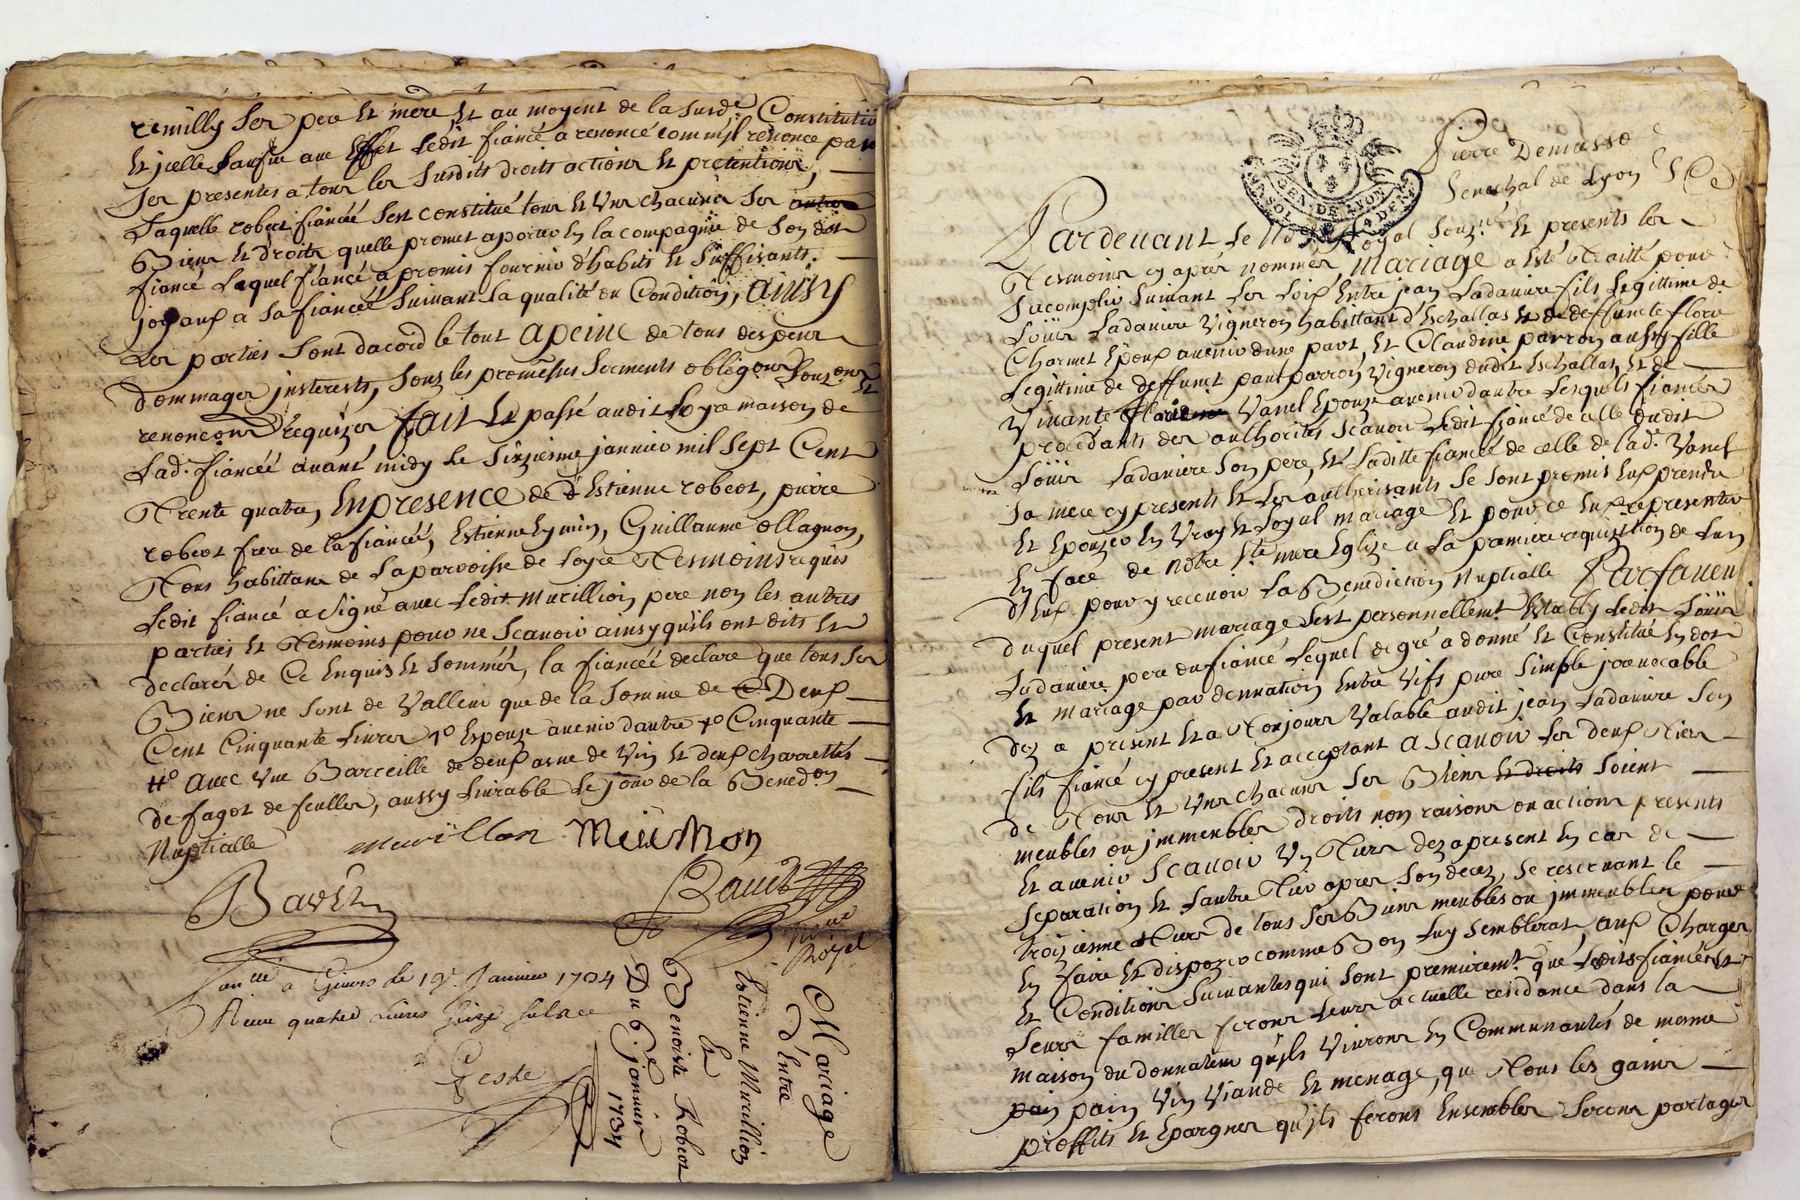 remilly ses pere Et mere Et au moyent de la susde. Constitutio
Et jcelle sansfre aue Effet ledit fiancé a renoncé comm'jl renonce par
ses presentes a tous les susdits droits actions Et pretentions,
Laquelle robert fiancée s'est constitué tous Et Vns chacuns ses
Biens Et droits quelle promet aporter En la compagnie de son dit
fiancé Lequel fiancé a promis fournir d'habits Et suffisants.
joyaux a sa fiancée suivant sa qualité ou Condition, ainsy
Les parties sont d'acord le tout apeine de tous despens
dommages jnterests, souz les promesses serments obligons souzons Et
renoncons requizes fait Et passé audit Loyre maison de
Lad. fiancée avant midy Le sixzieme janvier mil sept Cent
Trente quatre, En presence de d'Estienne robert, pierre
robert frere de la fiancée, Estienne Eymin, Guillaume ollagnon,
Tous habittans de La parroisse de Loyre Tesmoins requis
Ledit fiancé a signé avec Ledit murillion pere non les autres
parties Et Tesmoins pour ne scavoir ainsy qu'ils ont dits Et
declarés de Ce Enquis Et sommés, la fiancée declare que tous ses
Biens ne sont de Valleur que de la somme de Deux
Cent Cinquante Livres Espouze avenir d'autre Cinquante
tt° avec Vne Barreille de deux asne de Vin Et deux charrettés
de fagot de feulles, aussy Livrable Le jour de la Benedon
Nuptialle
murillon Murillion
Bavet
Bavet
Nore
Royal
Conlé a Givors le 19e Janvier 1734
Receu quatre Livres seize sols
Geste
Mariage
d'Entre
Estienne Murillion
Et
Benoiste Robert
Du 6e janvier
1734
Pierre Demasso
Senechal de Lyon
GEN. DE LYON
Pardevant Le No. Royal Souz.né Et presents les
Tesmoins cy aprés nommés, Mariage a Esté Traitté pour
s'acomplir suivant Les Loix Entre jean Ladaviere fils Legittime de
Loüis Ladaviere Vigneron habittant d'Eschallas Et de deffuncte flori
Charmet Epoux avenir d'une part, Et Claudine parron aussy fille
Legittime de deffunct paul parron Vigneron dudit Eschallas, Et de
Vivante Vanel Epouze avenir d'autre Lesquels fiancés
procedants des authorités scavoir Ledit fiancé de celle dudit
Loüis Ladaviere son pere, Et Laditte fiancée de celle de lad. Vanel
sa mere cy presents Et Les authorisants se sont promis Eux prendre
Et Epouzer En Vray Et Loyal mariage Et pour ce Eux representer
En face de notre Ste mere Eglize a La premiere requizition de L'un
d'Eux pour y recevoir La Benediction Nuptialle Par faveur
duquel present mariage s'est personnellemt. Estably Ledit Loüis
Ladaviere pere du fiancé Lequel de gré a donné Et Constitué En dot
Et mariage par donnation Entre Vifs pure simple jrrevocable
dez a present Et a Toujours Valable audit jean Ladaviere son
fils fiancé cy present Et acceptant a scavoir Les deux Tiers
de Tous Et Vns chacuns ses Biens Et droits soient
meubles ou jmmeubles droits non raisons ou actions presents
Et avenir scavoir Vn Tiers dez apresent En cas de
separation Et L'autre Tier apres son decez, se reservant le
troizieme Tiers de tous ses Biens meubles ou jmmeubles pour
En faire Et dispozer comme Bon Luy semblerat, aux Charges
Et Conditions suivantes qui sont premieremt. que Lesdits fiancés Et
Leurs familles ferons Leurs actuelle residance dans la
maison du donnateur qu'jls Vivrons En Communautés de mesme
pain pain Vin Viande Et menage, que Tous les gains
proffits Et Epargnes qu'jls ferons Ensembles serons partagés